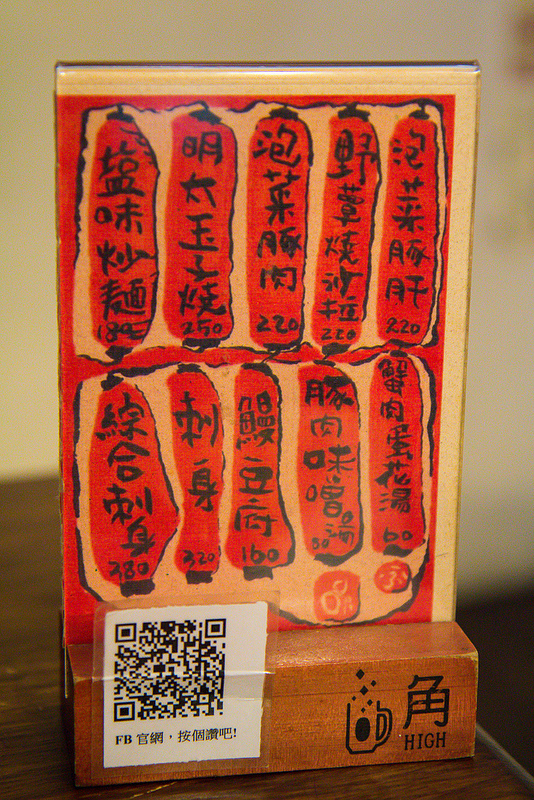 泡菜豚肝
220
野蕈燒沙拉
220
泡菜豚肉
220
明太玉子燒
250
塩味炒麵
180
蟹肉蛋花湯
60
豚肉味噌湯
80
鰻豆府
160
刺身
320
綜合刺身
380
FB 官網，按個讚吧!
角
HIGH